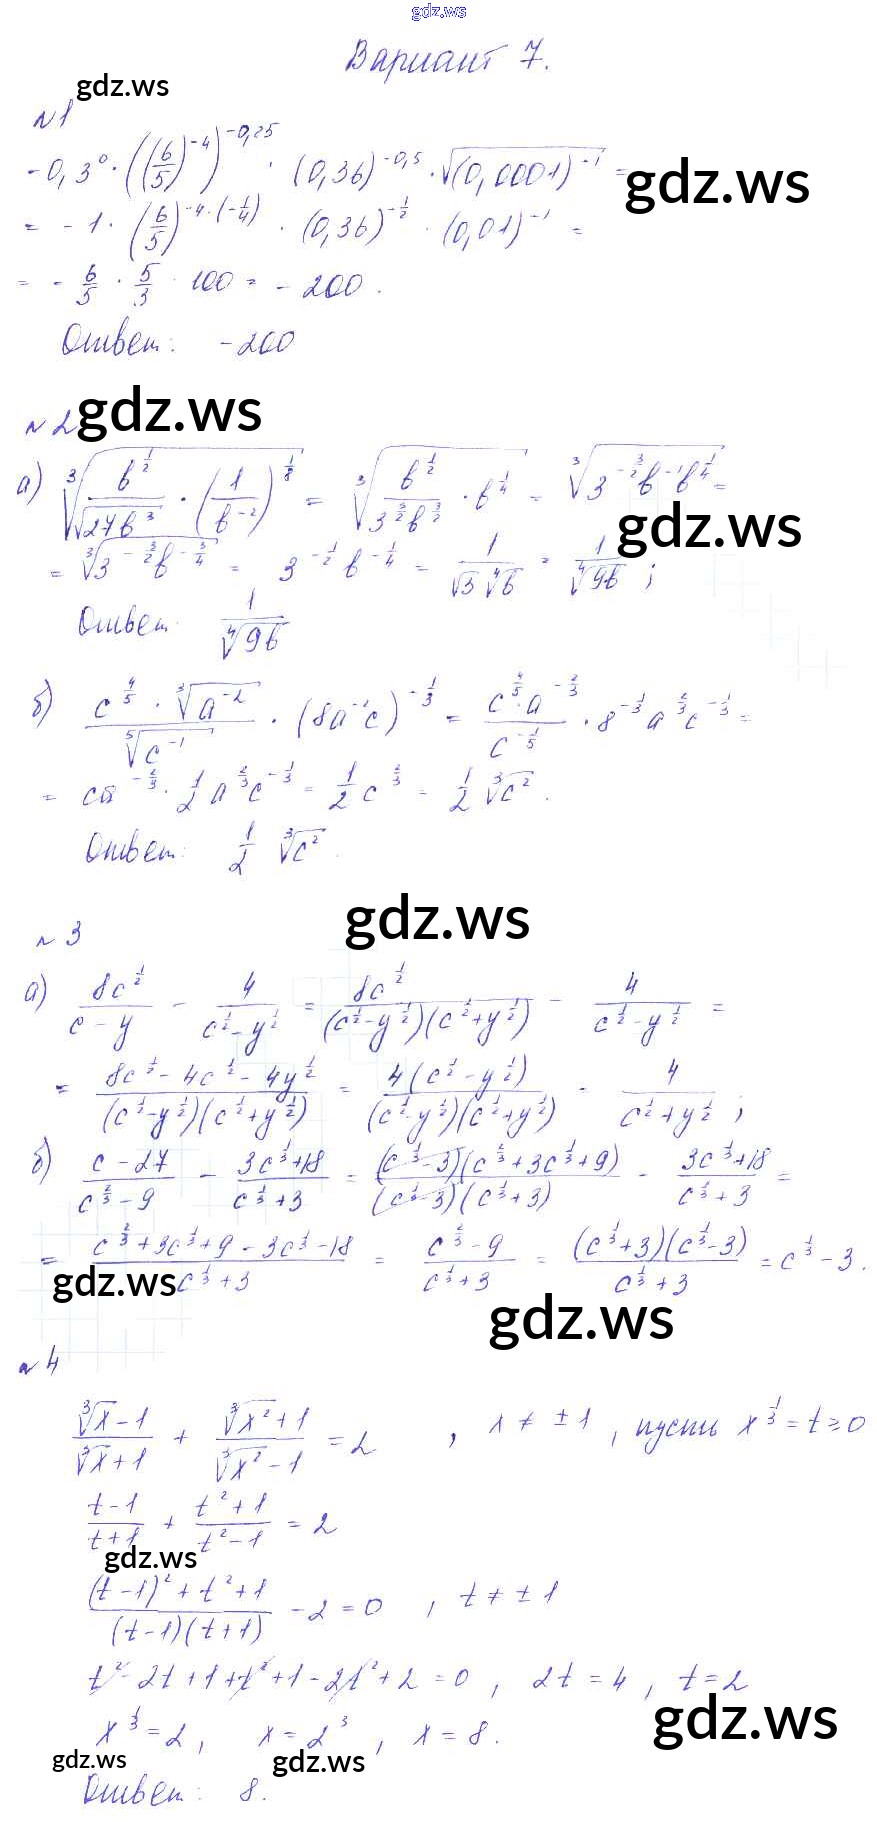 gdz.ws
Вариант 7.
gdz.ws
№1
-0,3⁰ · ((6/5)^(-4))^(-0,25) · (0,36)^(-0,5) · √((0,0001)^(-1)) =
gdz.ws
= -1 · (6/5)^(-4·(-1/4)) · (0,36)^(-1/2) · (0,01)^(-1) =
= - 6/5 · 5/3 · 100 = -200.
Ответ: -200
gdz.ws
№2
а) ∛(b^(1/2)/√(27b³) · (1/b^(-2))^(1/8)) = ∛(b^(1/2)/(3^(3/2)b^(3/2)) · b^(1/4)) = ∛(3^(-3/2)b^(-1)b^(1/4)) =
gdz.ws
= ∛(3^(-3/2)b^(-3/4)) = 3^(-1/2)b^(-1/4) = 1/(√3 ∜b) = 1/∜(9b);
Ответ: 1/∜(9b)
б) (c^(4/5) · ∛(a^(-2)))/⁵√(c^(-1)) · (8a^(-1)c)^(-1/3) = (c^(4/5)·a^(-2/3))/c^(-1/5) · 8^(-1/3)a^(2/3)c^(-1/3) =
= ca^(-2/3) · 1/2 a^(2/3)c^(-1/3) = 1/2 c^(2/3) = 1/2 ∛(c²).
Ответ: 1/2 ∛(c²).
gdz.ws
№3
а) 8c^(1/2)/(c-y) - 4/(c^(1/2)-y^(1/2)) = 8c^(1/2)/((c^(1/2)-y^(1/2))(c^(1/2)+y^(1/2))) - 4/(c^(1/2)-y^(1/2)) =
= (8c^(1/2)-4c^(1/2)-4y^(1/2))/((c^(1/2)-y^(1/2))(c^(1/2)+y^(1/2))) = 4(c^(1/2)-y^(1/2))/((c^(1/2)-y^(1/2))(c^(1/2)+y^(1/2))) = 4/(c^(1/2)+y^(1/2));
б) (c-27)/(c^(2/3)-9) - (3c^(1/3)+18)/(c^(1/3)+3) = ((c^(1/3)-3)(c^(2/3)+3c^(1/3)+9))/((c^(1/3)-3)(c^(1/3)+3)) - (3c^(1/3)+18)/(c^(1/3)+3) =
= (c^(2/3)+3c^(1/3)+9-3c^(1/3)-18)/(c^(1/3)+3) = (c^(2/3)-9)/(c^(1/3)+3) = ((c^(1/3)+3)(c^(1/3)-3))/(c^(1/3)+3) = c^(1/3)-3.
gdz.ws
gdz.ws
№4
(∛x-1)/(∛x+1) + (∛(x²)+1)/(∛(x²)-1) = 2, x ≠ ±1, пусть x^(1/3) = t ≥ 0
(t-1)/(t+1) + (t²+1)/(t²-1) = 2
gdz.ws
((t-1)²+t²+1)/((t-1)(t+1)) - 2 = 0, t ≠ ±1
t²-2t+1+t²+1-2t²+2 = 0, 2t = 4, t = 2
gdz.ws
x^(1/3) = 2, x = 2³, x = 8.
gdz.ws
gdz.ws
Ответ: 8.